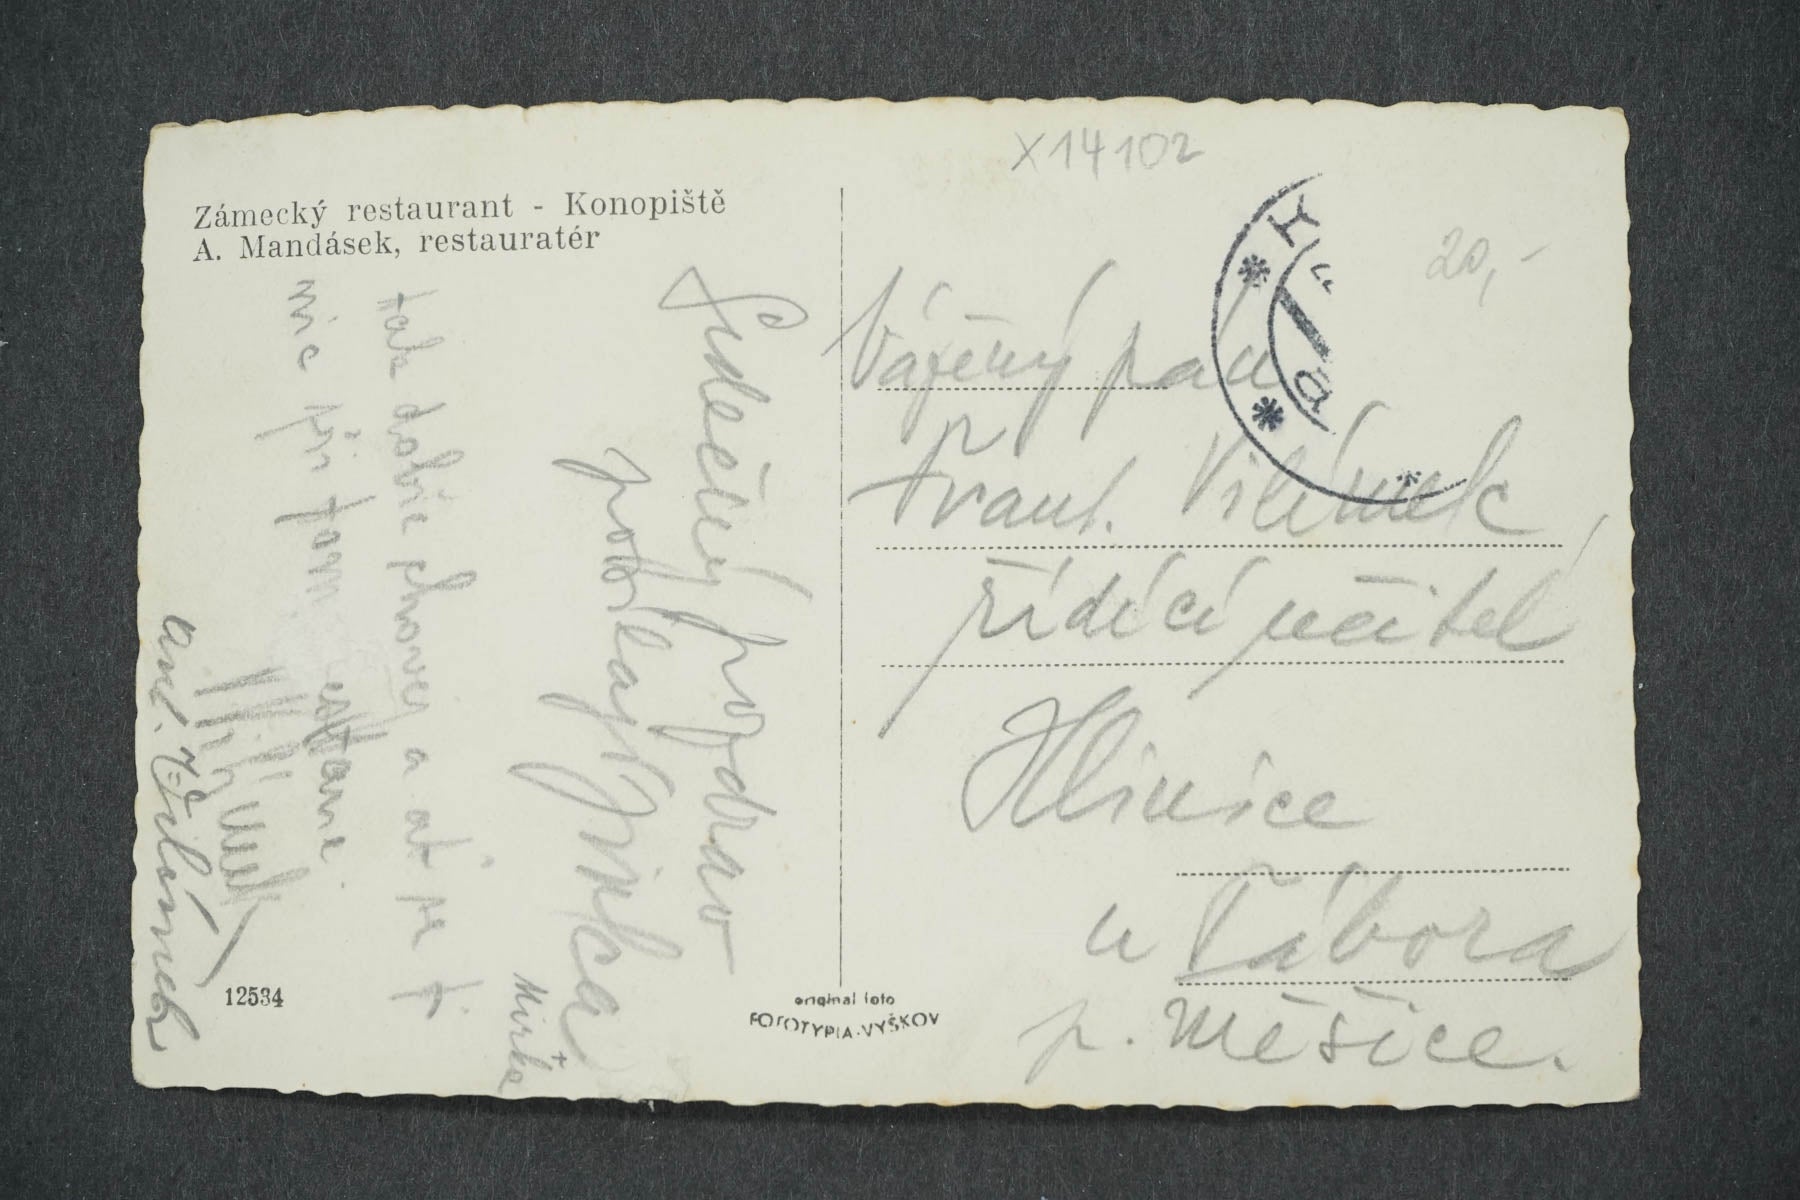 X14102
Zámecký restaurant - Konopiště
A. Mandásek, restauratér
20,-
Srdečný pozdrav
posílají Jirka
Mirka
tak dobře chovej a ať se ti
nic při tom nestane
ant. Vilímek
12534
original foto
FOTOTYPIA-VYŠKOV
Vážený pán
Frant. Vilímek,
řídící učitel
Hlinice
u Tábora
p. Měšice.